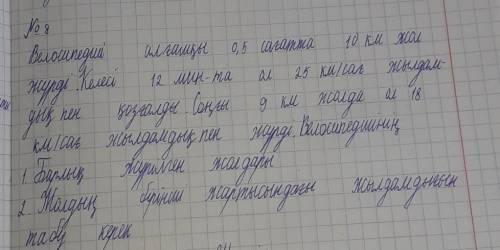 № 8
Велосипедий алғашқы 0,5 сағатта 10 км жол
жүрді. Келесі 12 мин-та ол 25 км/сағ жылдам-
дық пен қозғалды. Соңғы 9 км жолда ол 18
км/сағ жылдамдық пен жүрді. Велосипедшінің
1. Барлық жүрілген жолдары
2. Жолдың бірінші жартысындағы жылдамдығын
табу керек